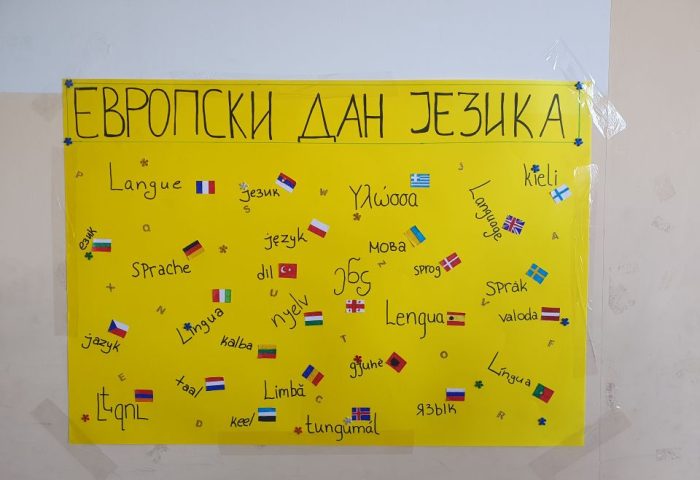 ЕВРОПСКИ ДАН ЈЕЗИКА
Langue
језик
Υλώσσα
Language
kieli
език
Sprache
język
мова
dil
ენა
sprog
språk
jazyk
Lingua
nyelv
Lengua
valoda
kalba
gjuhe
Língua
taal
Limbă
keel
tungumál
язык